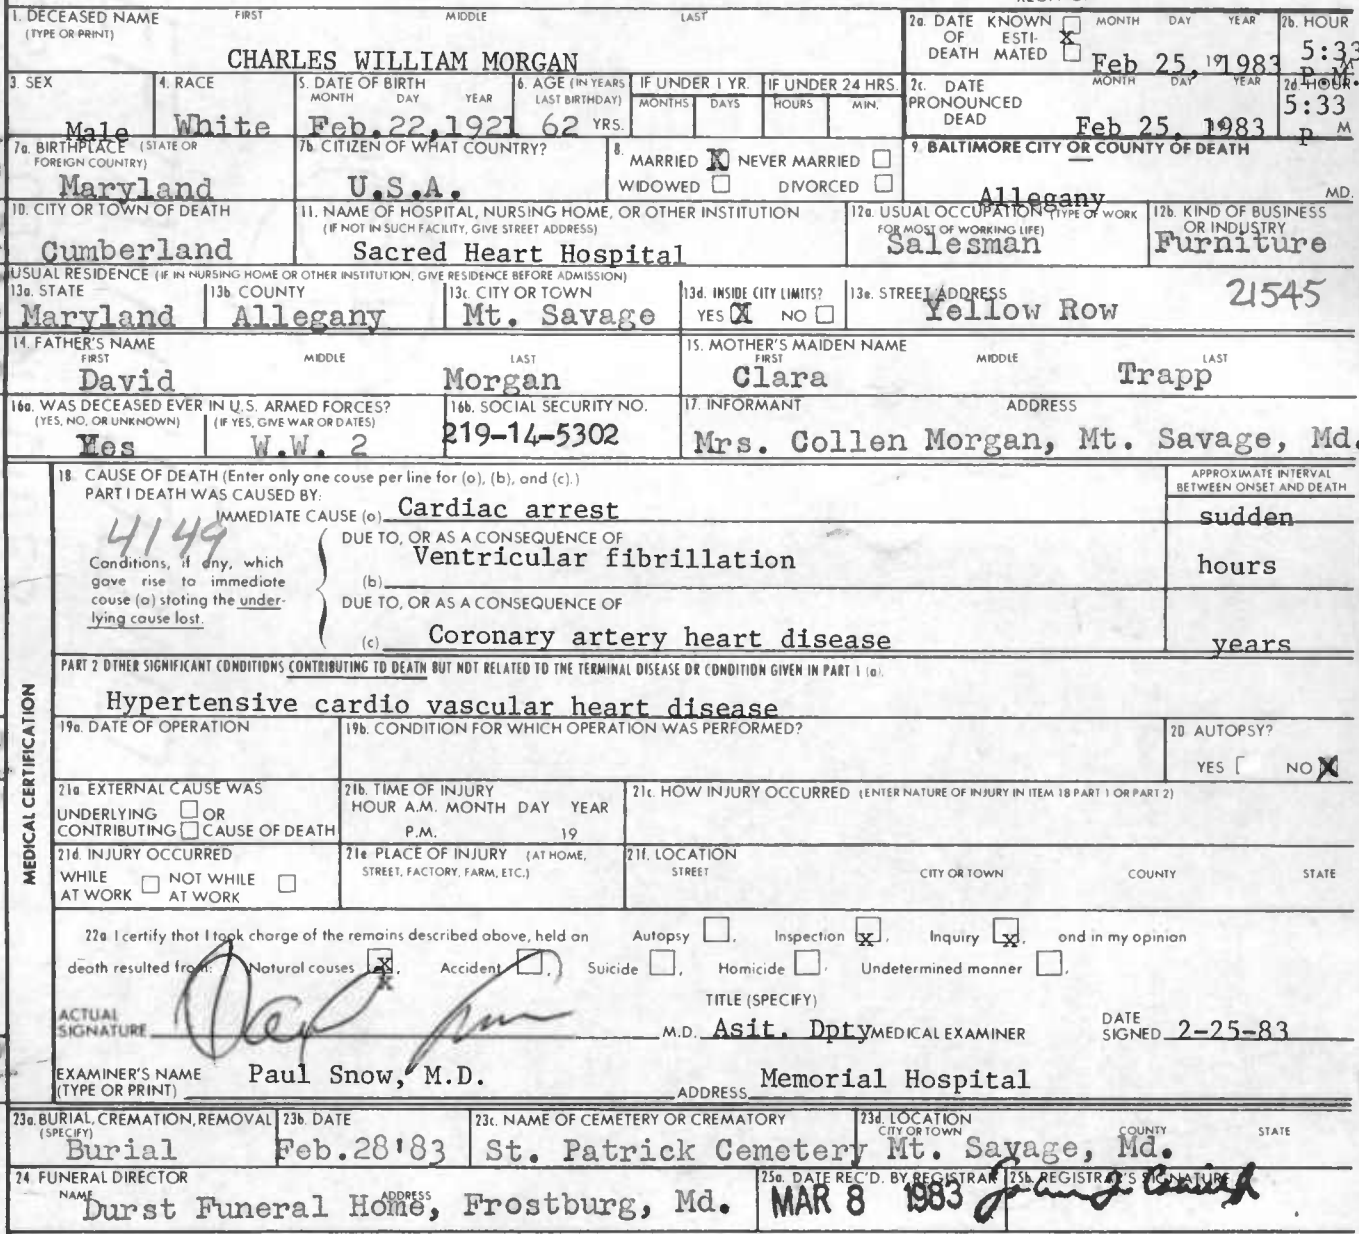 1. DECEASED NAME FIRST MIDDLE LAST
(TYPE OR PRINT)
CHARLES WILLIAM MORGAN
2a. DATE KNOWN MONTH DAY YEAR 2b. HOUR
OF ESTI- X
DEATH MATED Feb 25, 19 1983 5:33 P M.
3. SEX Male
4. RACE White
5. DATE OF BIRTH
MONTH DAY YEAR
Feb.22,1921
6. AGE (IN YEARS LAST BIRTHDAY) 62 YRS.
IF UNDER 1 YR. MONTHS DAYS
IF UNDER 24 HRS. HOURS MIN.
2c. DATE PRONOUNCED DEAD MONTH DAY YEAR
Feb 25, 1983
2d. HOUR
5:33 P M
7a. BIRTHPLACE (STATE OR FOREIGN COUNTRY)
Maryland
7b. CITIZEN OF WHAT COUNTRY?
U.S.A.
8. MARRIED X NEVER MARRIED
WIDOWED DIVORCED
9. BALTIMORE CITY OR COUNTY OF DEATH
Allegany MD.
10. CITY OR TOWN OF DEATH
Cumberland
11. NAME OF HOSPITAL, NURSING HOME, OR OTHER INSTITUTION
(IF NOT IN SUCH FACILITY, GIVE STREET ADDRESS)
Sacred Heart Hospital
12a. USUAL OCCUPATION (TYPE OF WORK FOR MOST OF WORKING LIFE)
Salesman
12b. KIND OF BUSINESS OR INDUSTRY
Furniture
USUAL RESIDENCE (IF IN NURSING HOME OR OTHER INSTITUTION, GIVE RESIDENCE BEFORE ADMISSION)
13a. STATE Maryland
13b. COUNTY Allegany
13c. CITY OR TOWN Mt. Savage
13d. INSIDE CITY LIMITS? YES X NO
13e. STREET ADDRESS Yellow Row 21545
14. FATHER'S NAME
FIRST MIDDLE LAST
David Morgan
15. MOTHER'S MAIDEN NAME
FIRST MIDDLE LAST
Clara Trapp
16a. WAS DECEASED EVER IN U.S. ARMED FORCES?
(YES, NO, OR UNKNOWN) (IF YES, GIVE WAR OR DATES)
Yes W.W. 2
16b. SOCIAL SECURITY NO.
219-14-5302
17. INFORMANT ADDRESS
Mrs. Collen Morgan, Mt. Savage, Md.
MEDICAL CERTIFICATION
18 CAUSE OF DEATH (Enter only one couse per line for (o), (b), and (c).)
PART I DEATH WAS CAUSED BY:
APPROXIMATE INTERVAL BETWEEN ONSET AND DEATH
IMMEDIATE CAUSE (o) Cardiac arrest sudden
4149
DUE TO, OR AS A CONSEQUENCE OF
Conditions, if any, which gave rise to immediate cause (a) stoting the under-lying couse lost.
(b) Ventricular fibrillation hours
DUE TO, OR AS A CONSEQUENCE OF
(c) Coronary artery heart disease years
PART 2 OTHER SIGNIFICANT CONDITIONS CONTRIBUTING TO DEATH BUT NOT RELATED TO THE TERMINAL DISEASE OR CONDITION GIVEN IN PART 1 (a).
Hypertensive cardio vascular heart disease
19a. DATE OF OPERATION
19b. CONDITION FOR WHICH OPERATION WAS PERFORMED?
20 AUTOPSY?
YES NO X
21a EXTERNAL CAUSE WAS
UNDERLYING OR
CONTRIBUTING CAUSE OF DEATH
21b. TIME OF INJURY
HOUR A.M. MONTH DAY YEAR
P.M. 19
21c. HOW INJURY OCCURRED (ENTER NATURE OF INJURY IN ITEM 18 PART 1 OR PART 2)
21d. INJURY OCCURRED
WHILE AT WORK NOT WHILE AT WORK
21e PLACE OF INJURY (AT HOME, STREET, FACTORY, FARM, ETC.)
21f. LOCATION
STREET CITY OR TOWN COUNTY STATE
22a I certify that I took charge of the remains described above, held an Autopsy , Inspection X , Inquiry X , ond in my opinion
death resulted from: Natural couses X , Accident , Suicide , Homicide , Undetermined manner .
X
ACTUAL SIGNATURE Paul Snow M.D.
TITLE (SPECIFY)
Asit. Dpty MEDICAL EXAMINER
DATE SIGNED 2-25-83
EXAMINER'S NAME (TYPE OR PRINT) Paul Snow, M.D.
ADDRESS Memorial Hospital
23a. BURIAL, CREMATION, REMOVAL (SPECIFY)
Burial
23b. DATE
Feb.28'83
23c. NAME OF CEMETERY OR CREMATORY
St. Patrick Cemetery
23d. LOCATION
CITY OR TOWN COUNTY STATE
Mt. Savage, Md.
24 FUNERAL DIRECTOR
NAME ADDRESS
Durst Funeral Home, Frostburg, Md.
25a. DATE REC'D. BY REGISTRAR
MAR 8 1983
25b. REGISTRAR'S SIGNATURE